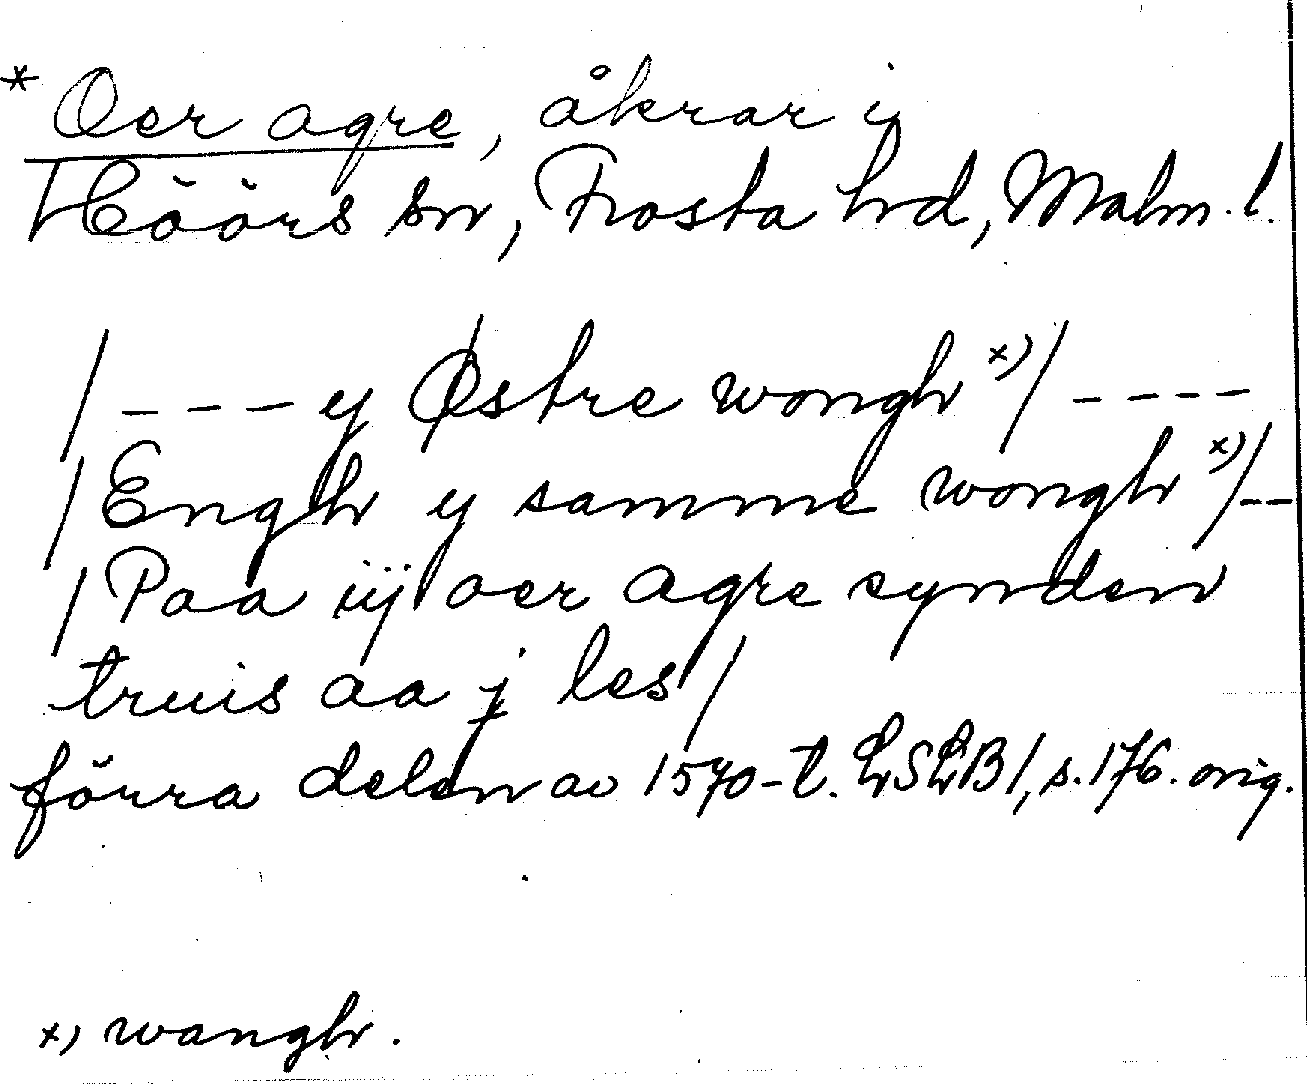 * Oer agre, åkrar i
Höörs sn, Frosta hd, Malm. l.
/ - - - y Østre wongh x) / - - - -
/ Engh y samme wongh x) / - -
/ Paa iij oer agre synden
truis aa j les /
förra delen av 1570-t. LSLB 1, s. 176. orig.
x) wangh.